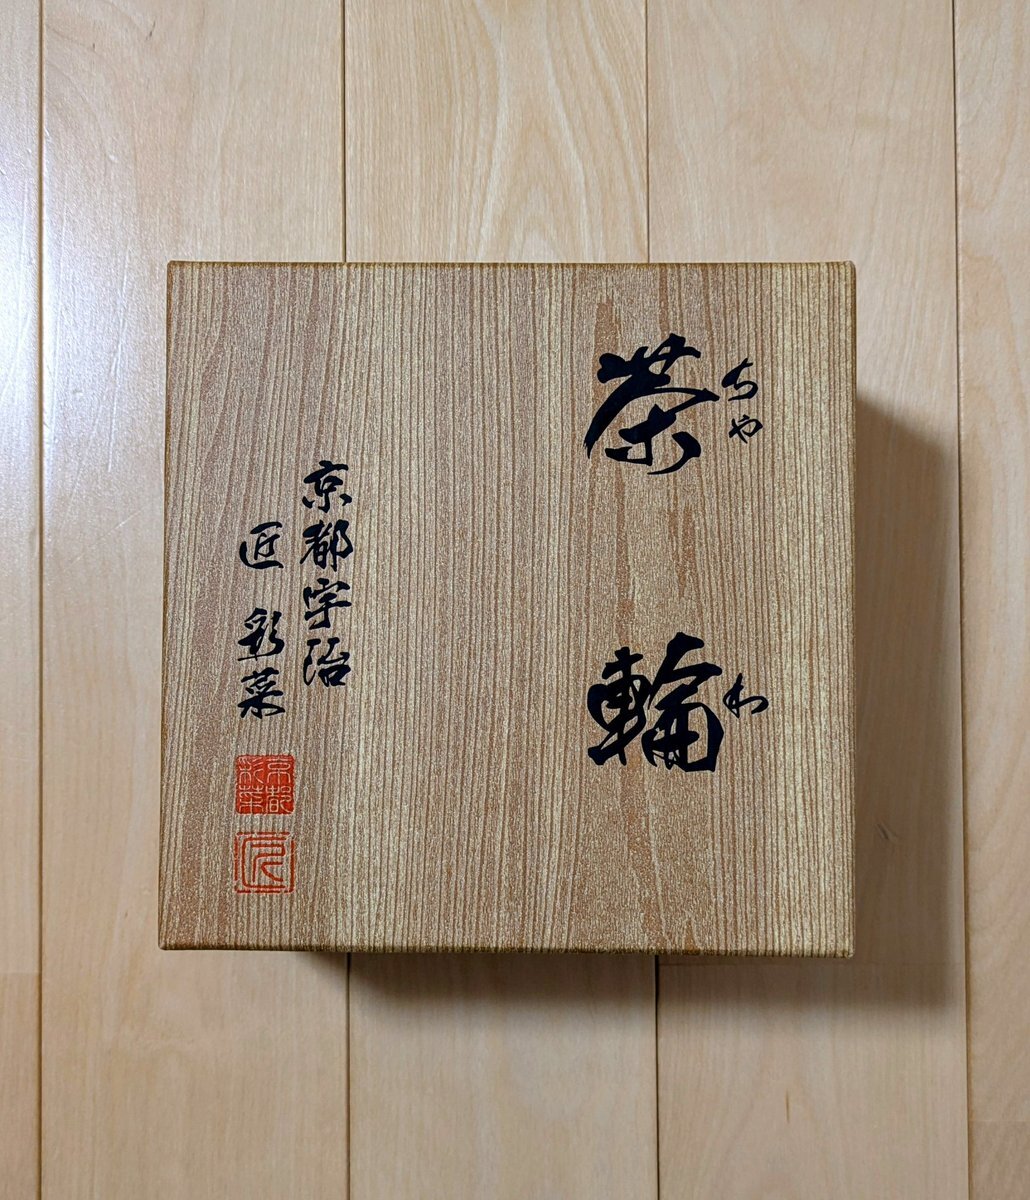 茶輪
ちや わ
京都宇治
匠 彩菜
京都
彩菜
匠